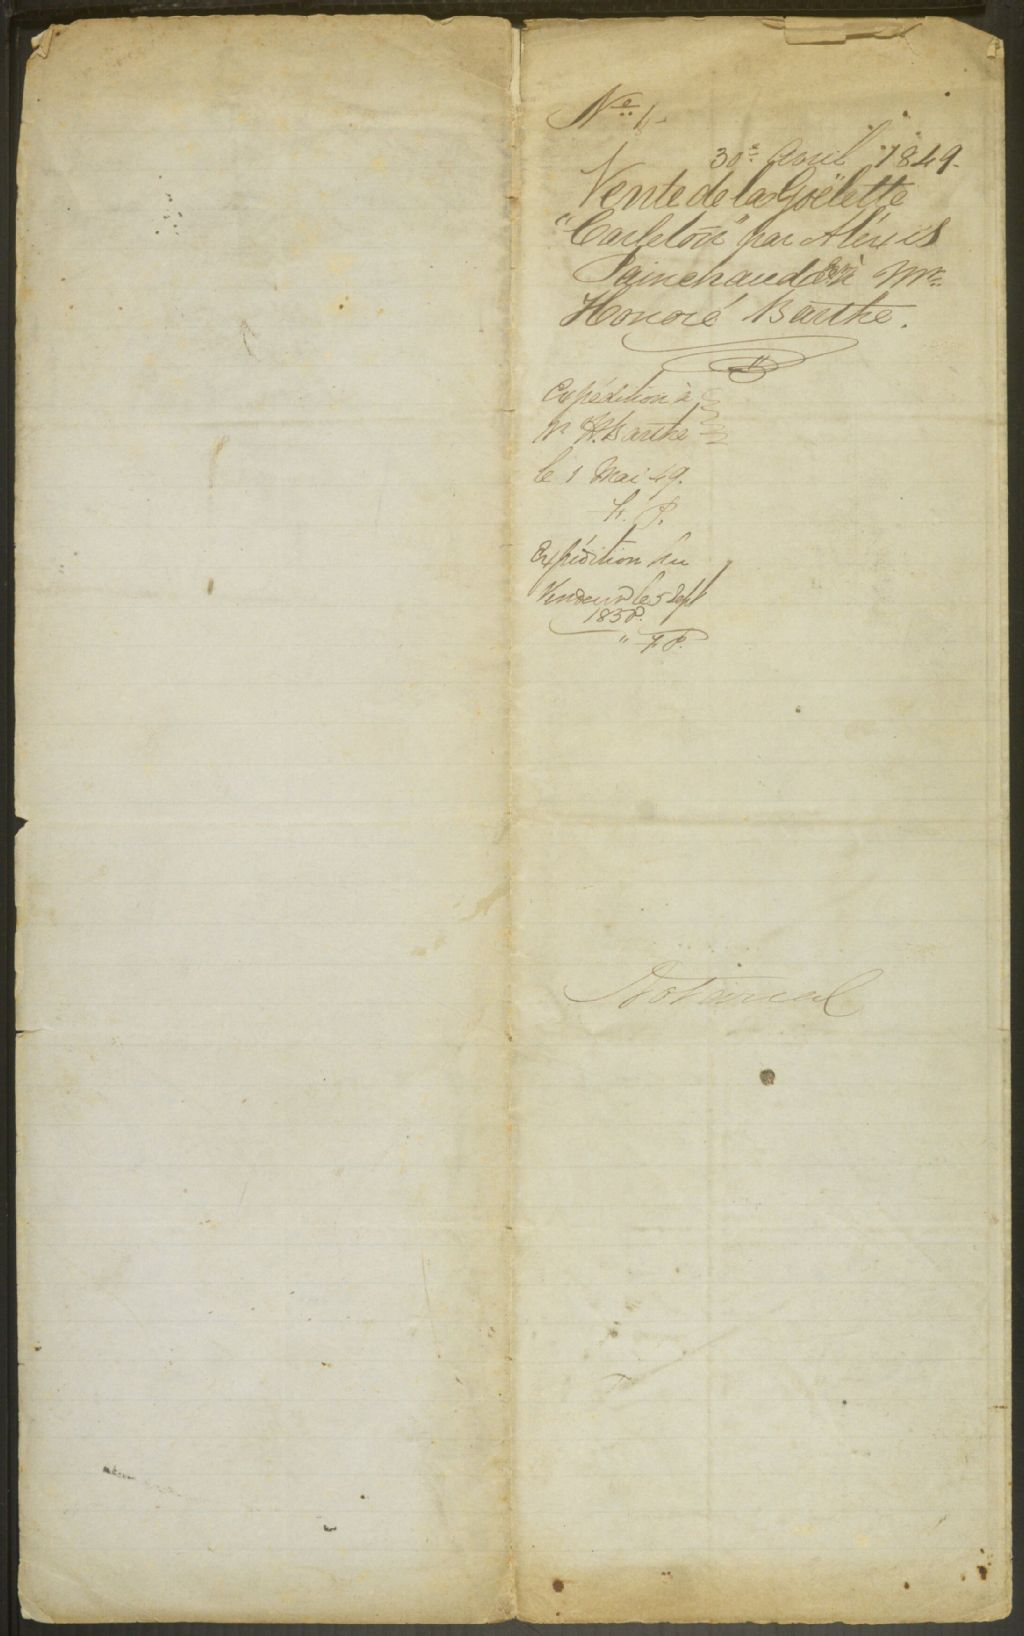 No. 4.
30e. Avril 1849.
Vente de la Goëlette
"Carleton" par Aléxis
Painchaud à Mr.
Honoré Barthe.
Expédition à
Mr H. Barthe
le 1 Mai 49.
F. P.
Expédition au
Vendeur le 5 Sept
185
" F P.
Notarial